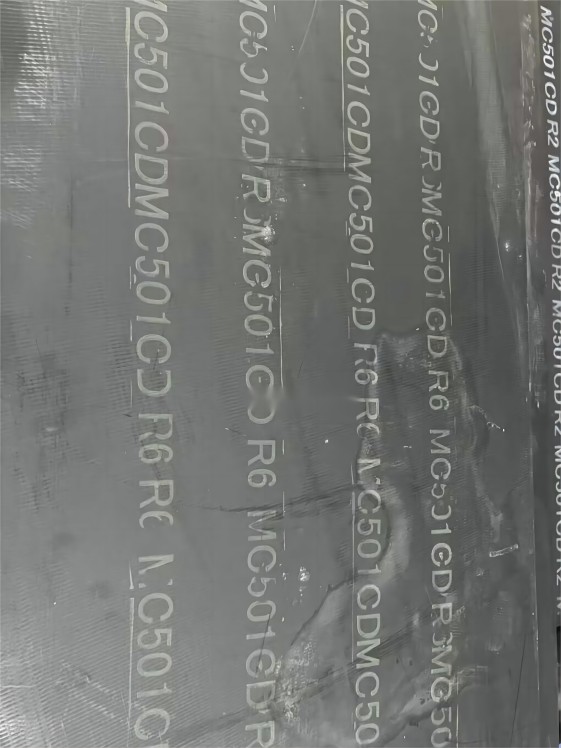 MC501CD R2 MC501CD R2 MC501CD R2 MC501CD R2
MC501CD R MC501CD R6 MC501CD R MC50
MC501CDMC501CD R6 R6 MC501CDMC50
MC501CD R MC501CD R6 MC501CD R
MC501CDMC501CD R6 R6 MC501C